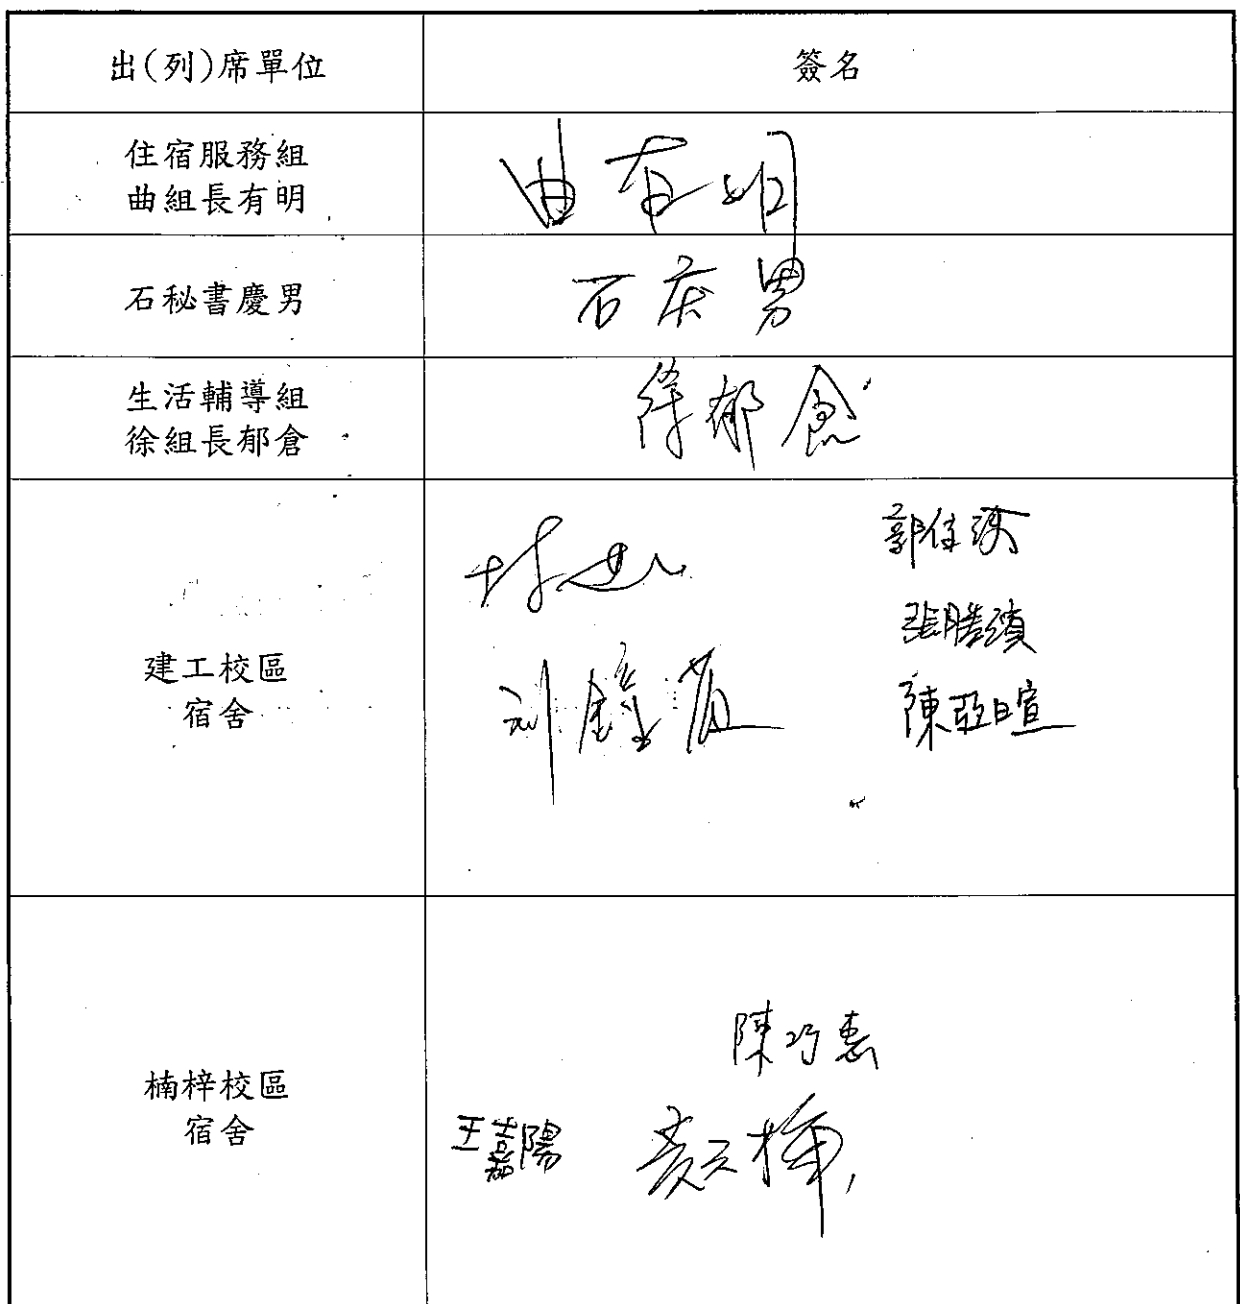 出(列)席單位
簽名
住宿服務組
曲組長有明
曲有明
石秘書慶男
石庆男
生活輔導組
徐組長郁倉
徐郁倉
建工校區
宿舍
陳亞暄
楠梓校區
宿舍
陳巧惠
王嘉陽